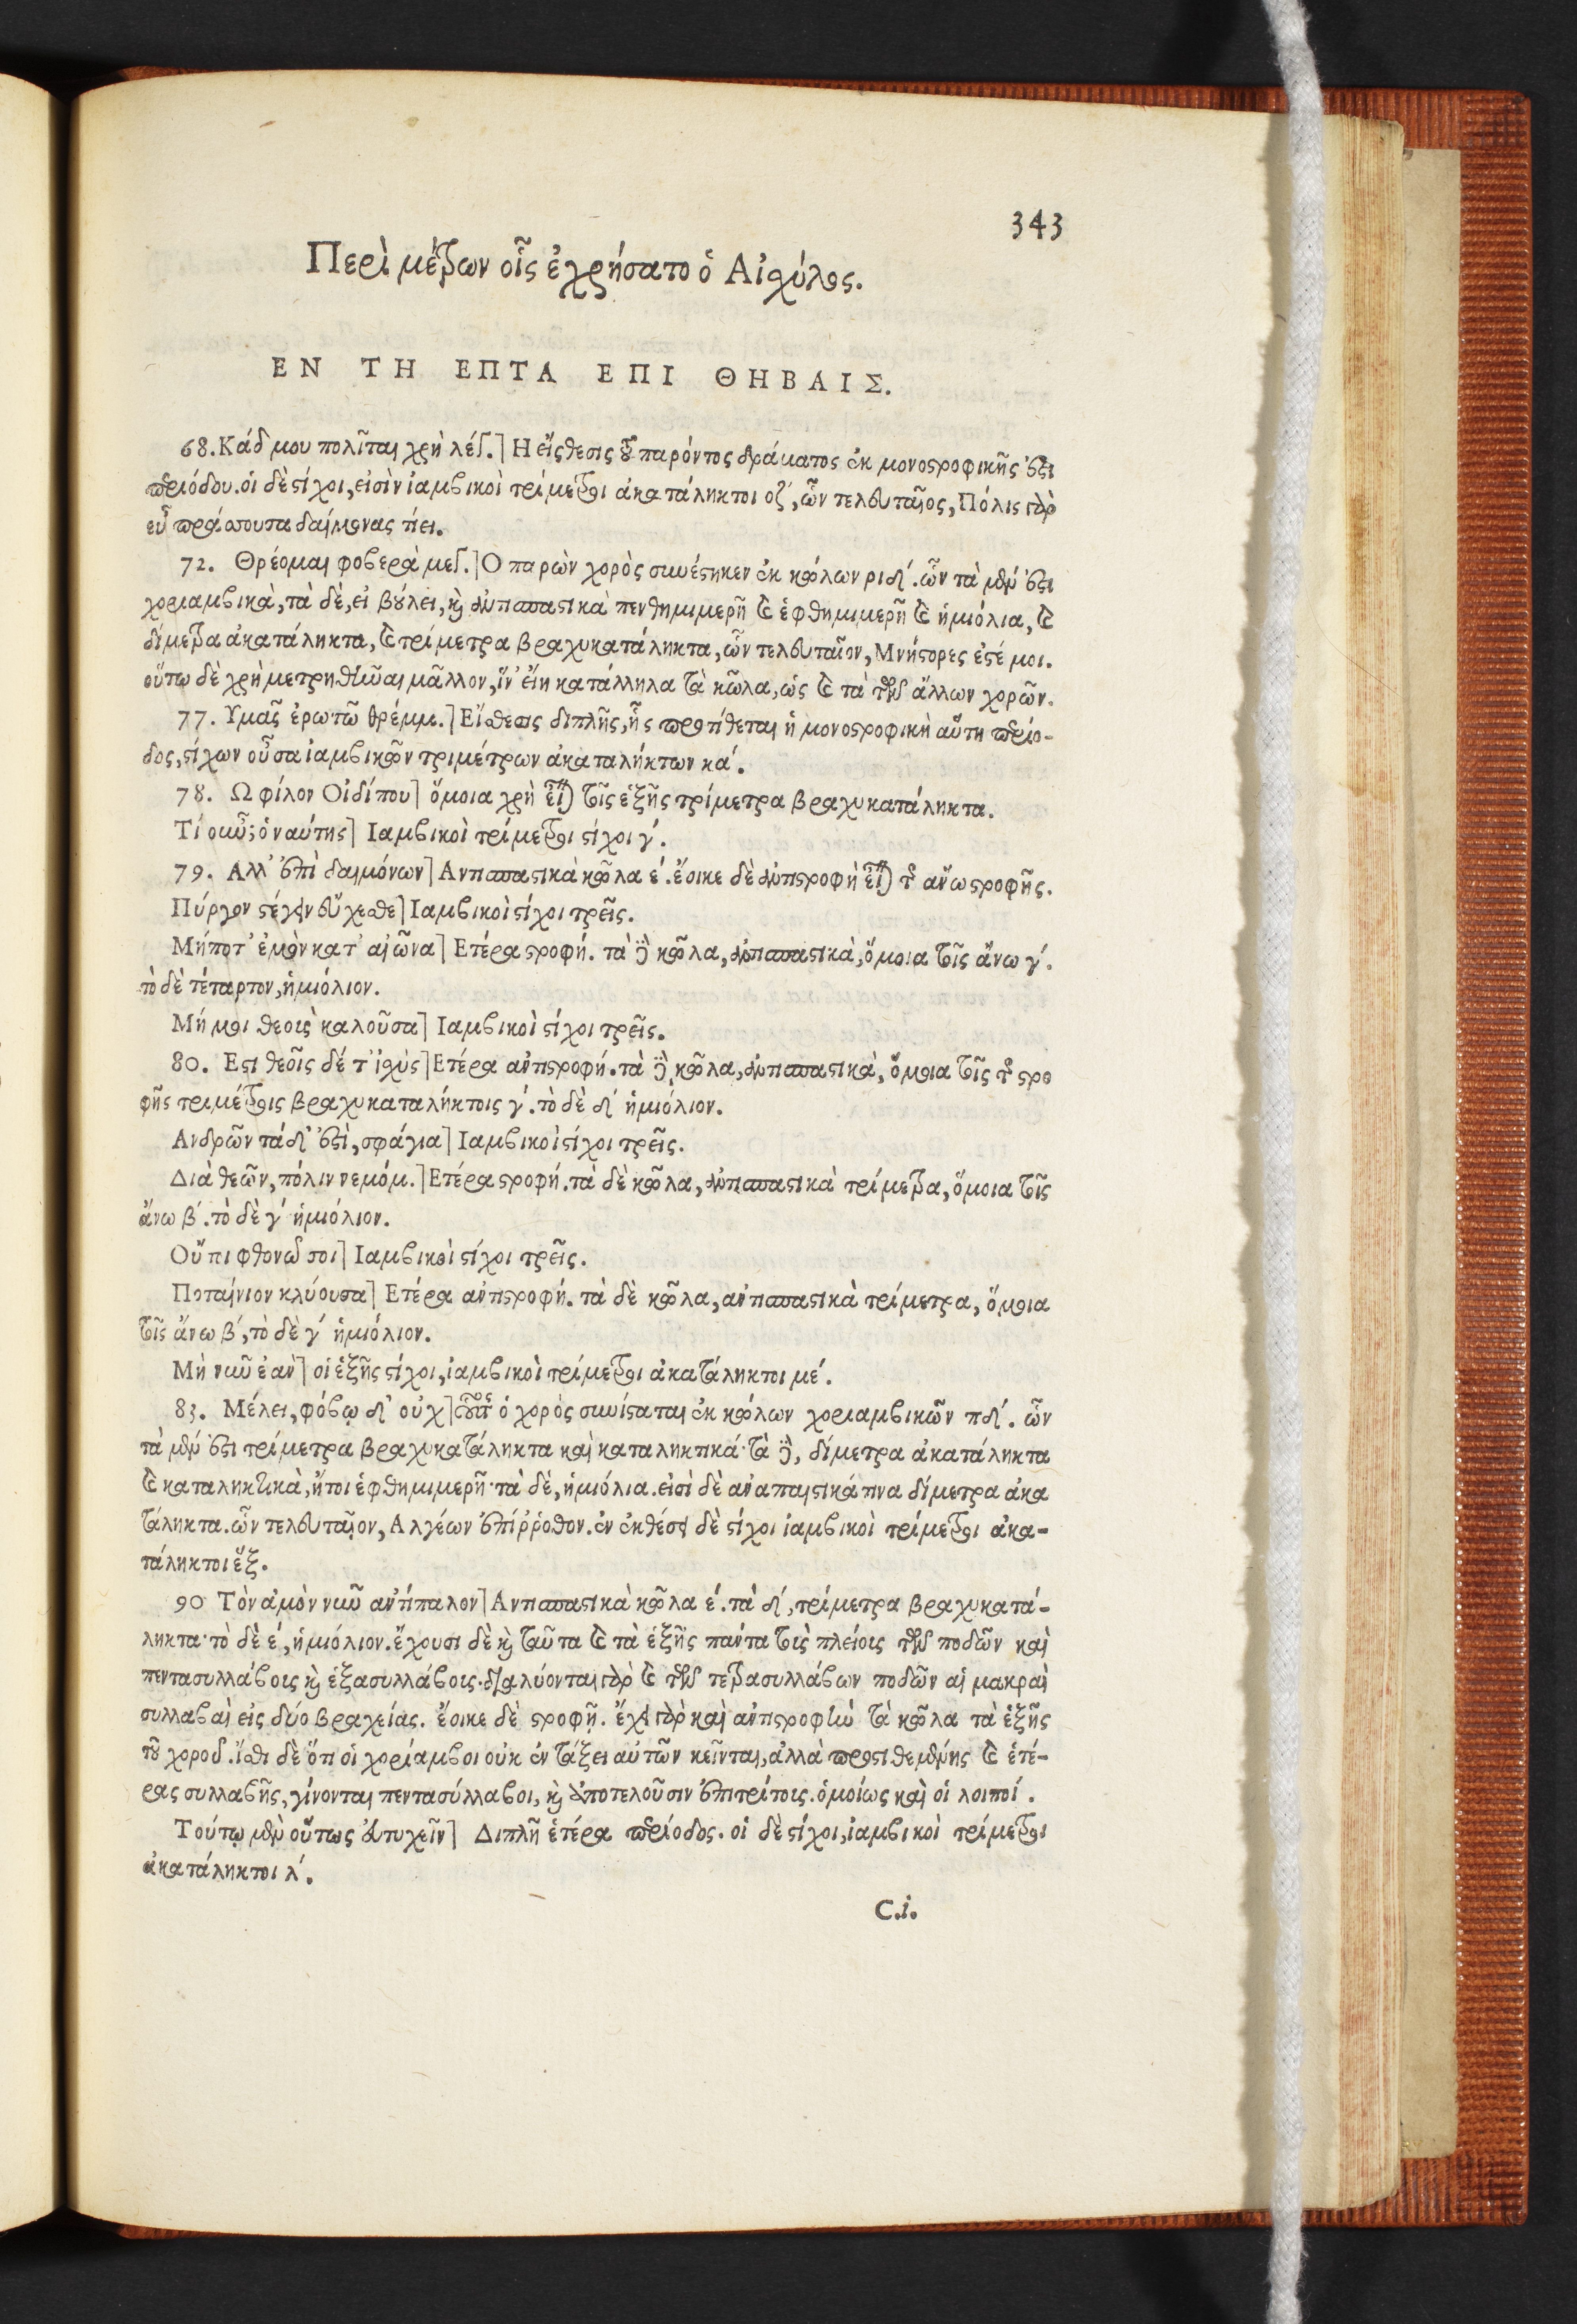 343
Περὶ μέτρων οἷς ἐχρήσατο ὁ Αἰσχύλος.
ΕΝ ΤΗ ΕΠΤΑ ΕΠΙ ΘΗΒΑΙΣ.
68. Κάδμου πολῖται χρὴ λέγ.] Η εἴσθεσις τοῦ παρόντος δράματος ἐκ μονοστροφικῆς ἐστι
περιόδου. οἱ δὲ στίχοι, εἰσὶν ἰαμβικοὶ τρίμετροι ἀκατάληκτοι οζ΄, ὧν τελευταῖος, Πόλις γὰρ
εὖ πράσσουσα δαίμονας τίει.
72. Θρέομαι φοβερὰ μεγ.] Ο παρὼν χορὸς συνέστηκεν ἐκ κώλων ριδ΄. ὧν τὰ μέν ἐστι
χοριαμβικὰ, τὰ δὲ, εἰ βούλει, καὶ ἀντισπαστικὰ πενθημιμερῆ καὶ ἑφθημιμερῆ καὶ ἡμιόλια, καὶ
δίμετρα ἀκατάληκτα, καὶ τρίμετρα βραχυκατάληκτα, ὧν τελευταῖον, Μνήστορες ἐστέ μοι.
οὕτω δὲ χρὴ μετρηθῆναι μᾶλλον, ἵν' εἴη κατάλληλα τὰ κῶλα, ὡς καὶ τὰ τῶν ἄλλων χορῶν.
77. Υμᾶς ἐρωτῶ θρέμμ.] Εἴσθεσις διπλῆς, ἧς προτίθεται ἡ μονοστροφικὴ αὕτη περίο-
δος, στίχων οὖσα ἰαμβικῶν τριμέτρων ἀκαταλήκτων κα΄.
78. Ω φίλον Οἰδίπου] ὅμοια χρὴ εἶναι τοῖς ἑξῆς τρίμετρα βραχυκατάληκτα.
Τί οὖν; ὁ ναύτης] Ιαμβικοὶ τρίμετροι στίχοι γ΄.
79. Αλλ' ἐπὶ δαιμόνων] Αντισπαστικὰ κῶλα ε΄. ἔοικε δὲ ἀντιστροφὴ εἶναι τῆς ἄνω στροφῆς.
Πύργον στέγειν εὔχεσθε] Ιαμβικοὶ στίχοι τρεῖς.
Μήποτ' ἐμὸν κατ' αἰῶνα] Ετέρα στροφή. τὰ δὲ κῶλα, ἀντισπαστικὰ, ὅμοια τοῖς ἄνω γ΄.
τὸ δὲ τέταρτον, ἡμιόλιον.
Μή μοι θεοὺς καλοῦσα] Ιαμβικοὶ στίχοι τρεῖς.
80. Εστι θεοῖς δέ τ' ἰσχὺς] Ετέρα ἀντιστροφή. τὰ δὲ κῶλα, ἀντισπαστικὰ, ὅμοια τοῖς τῆς στρο
φῆς τριμέτροις βραχυκαταλήκτοις γ΄. τὸ δὲ δ΄ ἡμιόλιον.
Ανδρῶν τάδ' ἐστὶ, σφάγια] Ιαμβικοὶ στίχοι τρεῖς.
Διὰ θεῶν, πόλιν νεμόμ.] Ετέρα στροφή. τὰ δὲ κῶλα, ἀντισπαστικὰ τρίμετρα, ὅμοια τοῖς
ἄνω β΄. τὸ δὲ γ΄ ἡμιόλιον.
Οὔτι φθονῶ σοι] Ιαμβικοὶ στίχοι τρεῖς.
Ποταίνιον κλύουσα] Ετέρα ἀντιστροφή. τὰ δὲ κῶλα, ἀντισπαστικὰ τρίμετρα, ὅμοια
τοῖς ἄνω β΄, τὸ δὲ γ΄ ἡμιόλιον.
Μὴ νῦν ἐὰν] οἱ ἑξῆς στίχοι, ἰαμβικοὶ τρίμετροι ἀκατάληκτοι με΄.
83. Μέλει, φόβῳ δ' οὐχ] οὗτος ὁ χορὸς συνίσταται ἐκ κώλων χοριαμβικῶν πδ΄. ὧν
τὰ μέν ἐστι τρίμετρα βραχυκατάληκτα καὶ καταληκτικά· τὰ δὲ, δίμετρα ἀκατάληκτα
καὶ καταληκτικὰ, ἤτοι ἑφθημιμερῆ· τὰ δὲ, ἡμιόλια. εἰσὶ δὲ ἀναπαιστικά τινα δίμετρα ἀκα
τάληκτα. ὧν τελευταῖον, Αλγέων ἐπίῤῥοθον. ἐν ἐκθέσει δὲ στίχοι ἰαμβικοὶ τρίμετροι ἀκα-
τάληκτοι ἕξ.
90 Τὸν ἀμὸν νῦν ἀντίπαλον] Αντισπαστικὰ κῶλα ε΄. τὰ δ΄, τρίμετρα βραχυκατά-
ληκτα· τὸ δὲ ε΄, ἡμιόλιον. ἔχουσι δὲ καὶ ταῦτα καὶ τὰ ἑξῆς πάντα τοὺς πλείους τῶν ποδῶν καὶ
πεντασυλλάβους καὶ ἑξασυλλάβους· διαλύονται γὰρ καὶ τῶν τετρασυλλάβων ποδῶν αἱ μακραὶ
συλλαβαὶ εἰς δύο βραχείας. ἔοικε δὲ στροφῇ. ἔχει γὰρ καὶ ἀντιστροφὴν τὰ κῶλα τὰ ἑξῆς
τοῦ χοροῦ. ἴσθι δὲ ὅτι οἱ χορίαμβοι οὐκ ἐν τάξει αὐτῶν κεῖνται, ἀλλὰ προστιθεμένης καὶ ἑτέ-
ρας συλλαβῆς, γίνονται πεντασύλλαβοι, καὶ ἀποτελοῦσιν ἐπιτρίτους. ὁμοίως καὶ οἱ λοιποί.
Τούτῳ μὲν οὕτως εὐτυχεῖν] Διπλῆ ἑτέρα περίοδος. οἱ δὲ στίχοι, ἰαμβικοὶ τρίμετροι
ἀκατάληκτοι λ΄.
C.i.